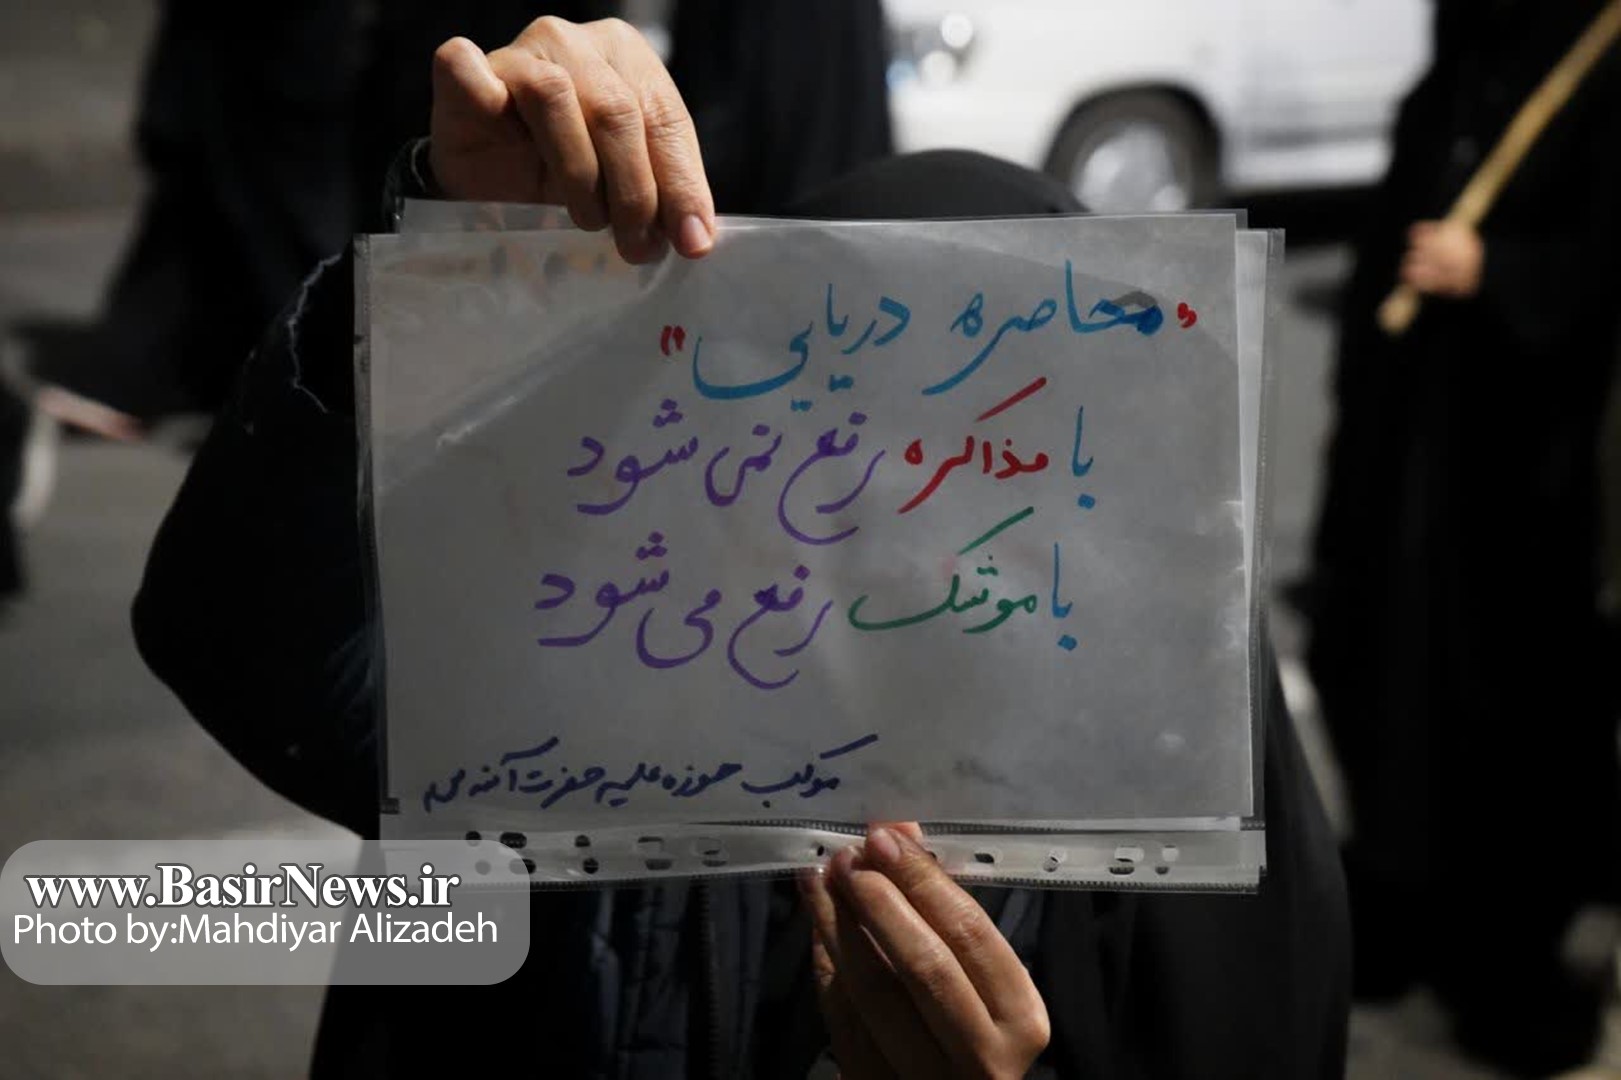 "محاصره دریایی"
با مذاکره رفع نمی شود
با موشک رفع می شود
موکب حوزه علمیه حضرت آمنه س
www.BasirNews.ir
Photo by:Mahdiyar Alizadeh